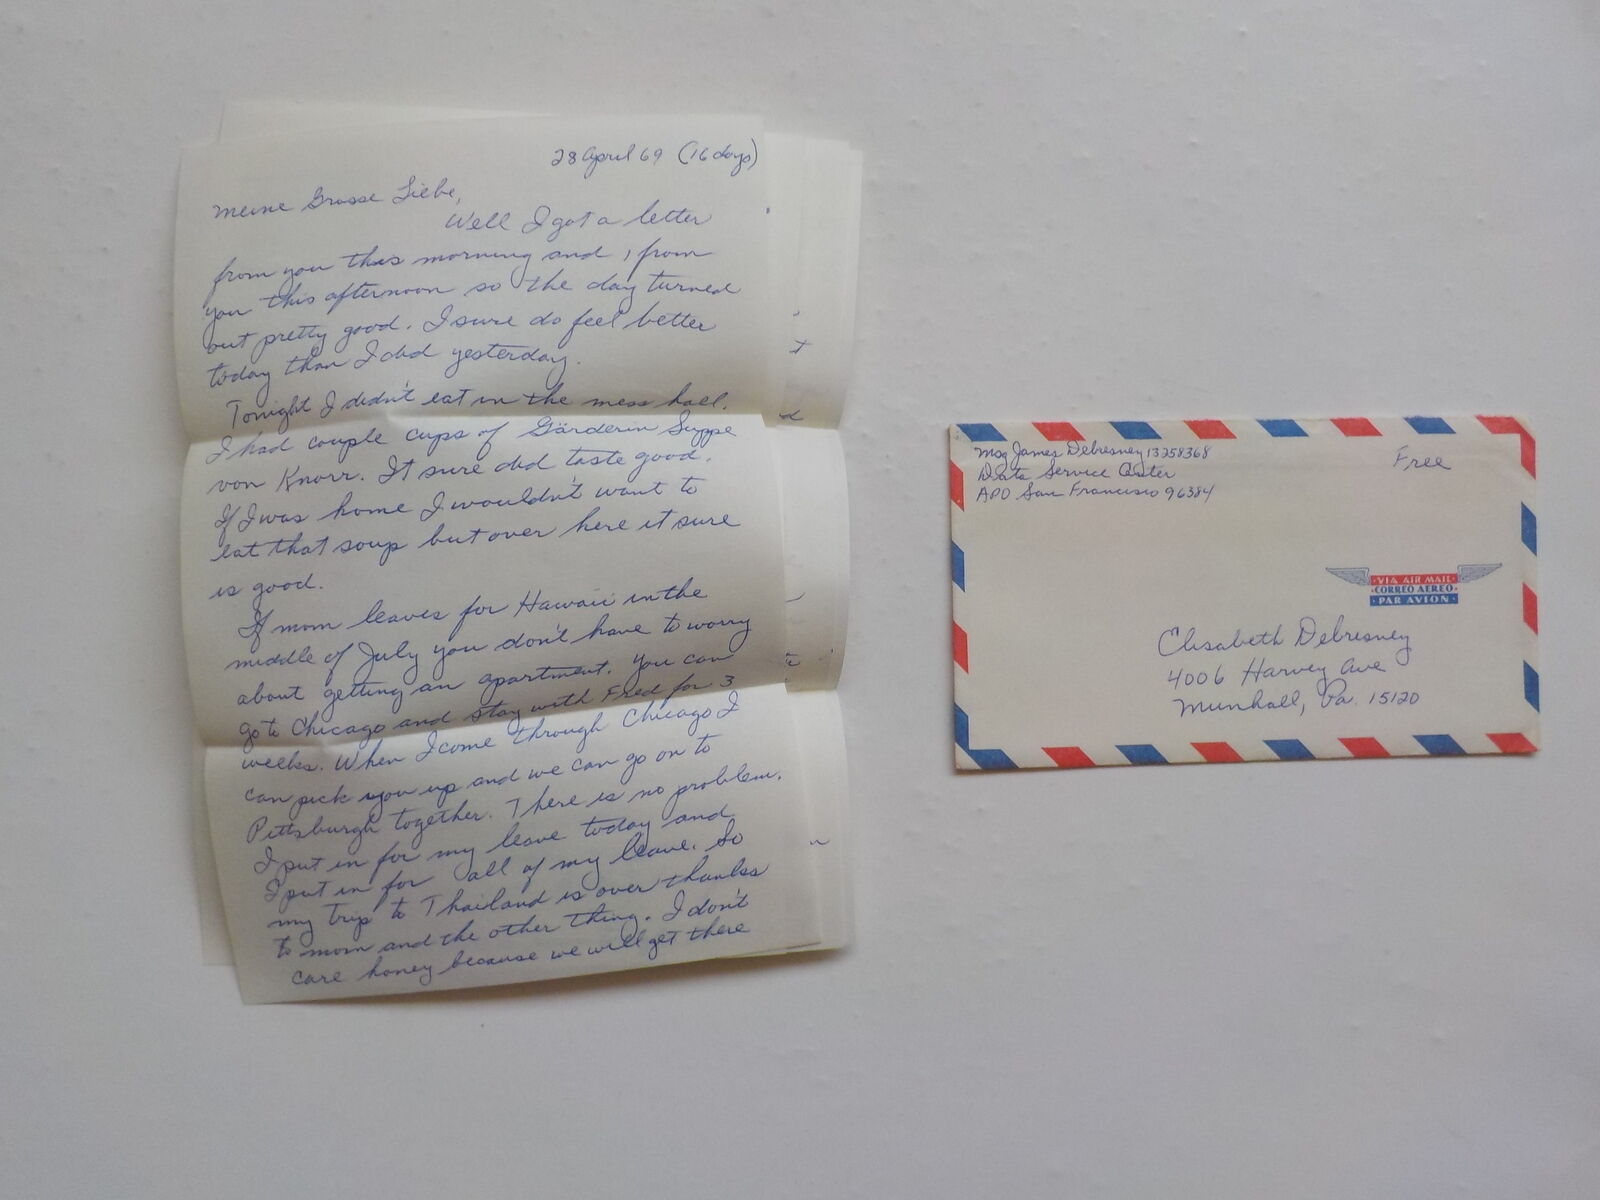 28 April 69 (16 days)
Meine Grosse Liebe,
Well I got a letter
from you this morning and 1 from
you this afternoon so the day turned
out pretty good. I sure do feel better
today than I did yesterday.
Tonight I didn't eat in the mess hall.
I had couple cups of Gärderin Suppe
von Knorr. It sure did taste good.
If I was home I wouldn't want to
eat that soup but over here it sure
is good.
If mom leaves for Hawaii in the
middle of July you don't have to worry
about getting an apartment. You can
go to Chicago and stay with Fred for 3
weeks. When I come through Chicago I
can pick you up and we can go on to
Pittsburgh together. There is no problem.
I put in for my leave today and
I put in for all of my leave. So
my trip to Thailand is over thanks
to mom and the other thing. I don't
care honey because we will get there
Msg James Debresney 13258368
Data Service Center
APO San Francisco 96384
Free
VIA AIR MAIL
CORREO AEREO
PAR AVION
Elisabeth Debresney
4006 Harvey Ave
Munhall, Pa. 15120